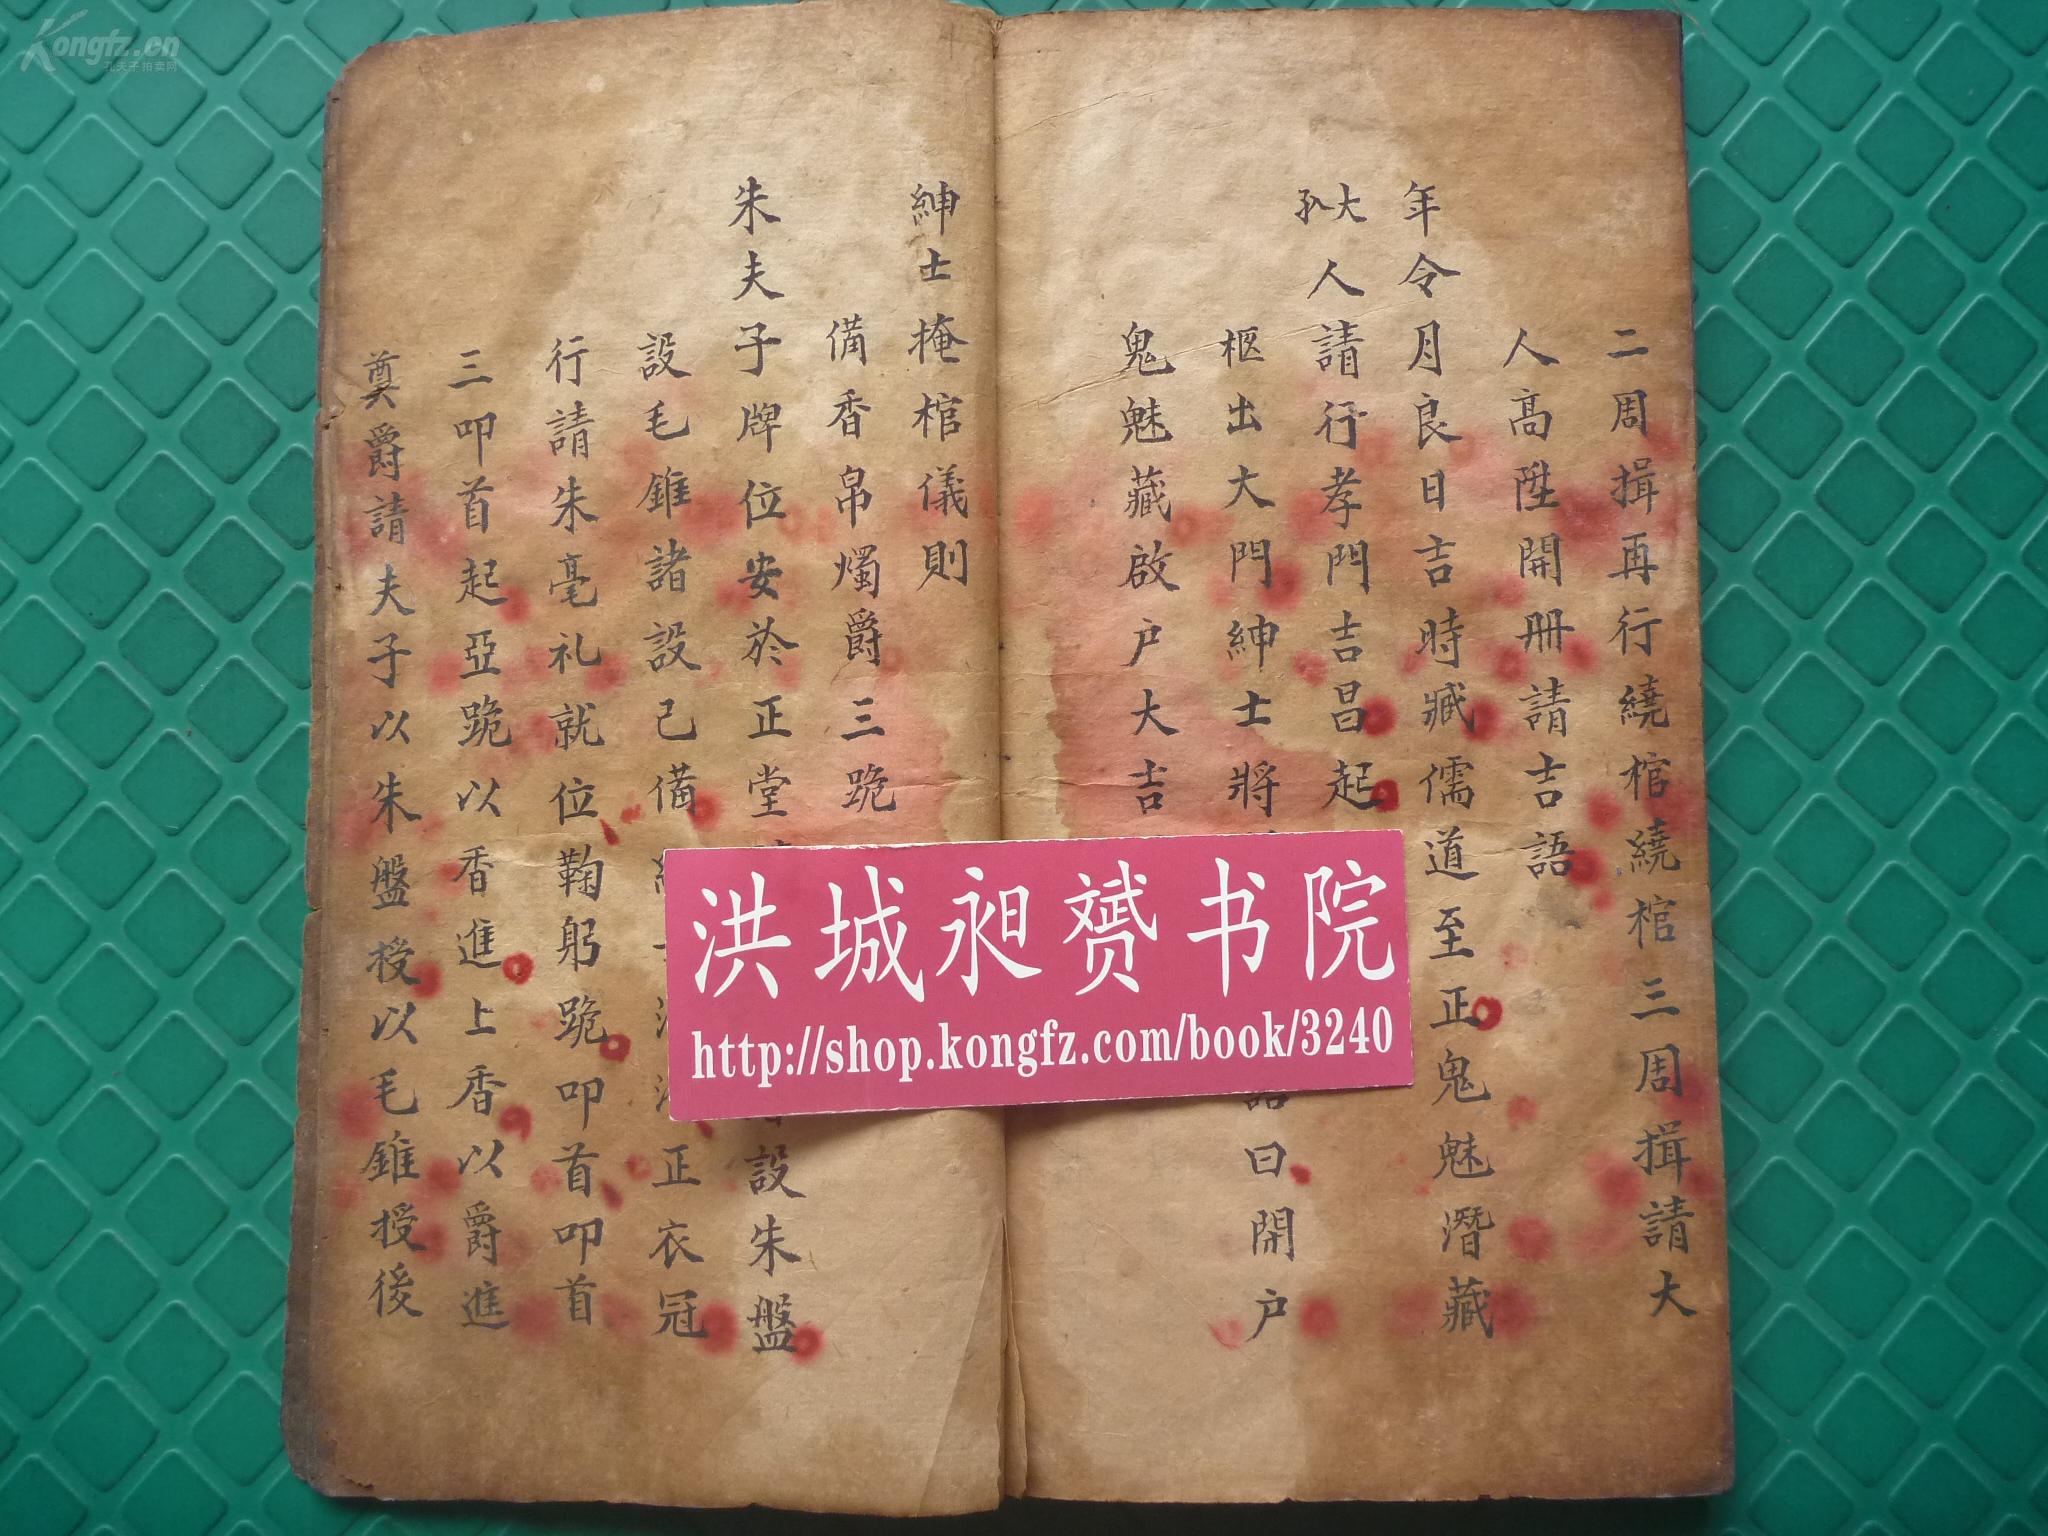 二周揖再行繞棺繞棺三周揖請大
人高陞開冊請吉語
年令月良日吉時臧儒道至正鬼魅潛藏
大人請行孝門吉昌起
柩出大門紳士將
語曰開户
鬼魅藏啟户大吉
紳士掩棺儀則
備香帛燭爵三跪
朱夫子牌位安於正堂
設朱盤
設毛錐諸設己備
正衣冠
行請朱毫礼就位鞠躬跪叩首叩首
三叩首起亞跪以香進上香以爵進
奠爵請夫子以朱盤授以毛錐授後
洪城昶赟书院
http://shop.kongfz.com/book/3240
Kongfz.cn
孔夫子拍卖网